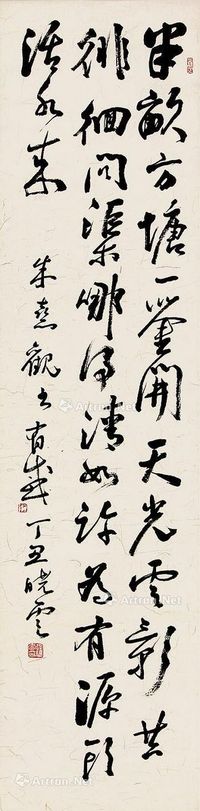 半畝方塘一鑒開天光雲影共
徘徊問渠哪得清如許為有源頭
活水來
朱熹觀書有感 丁丑曉雲